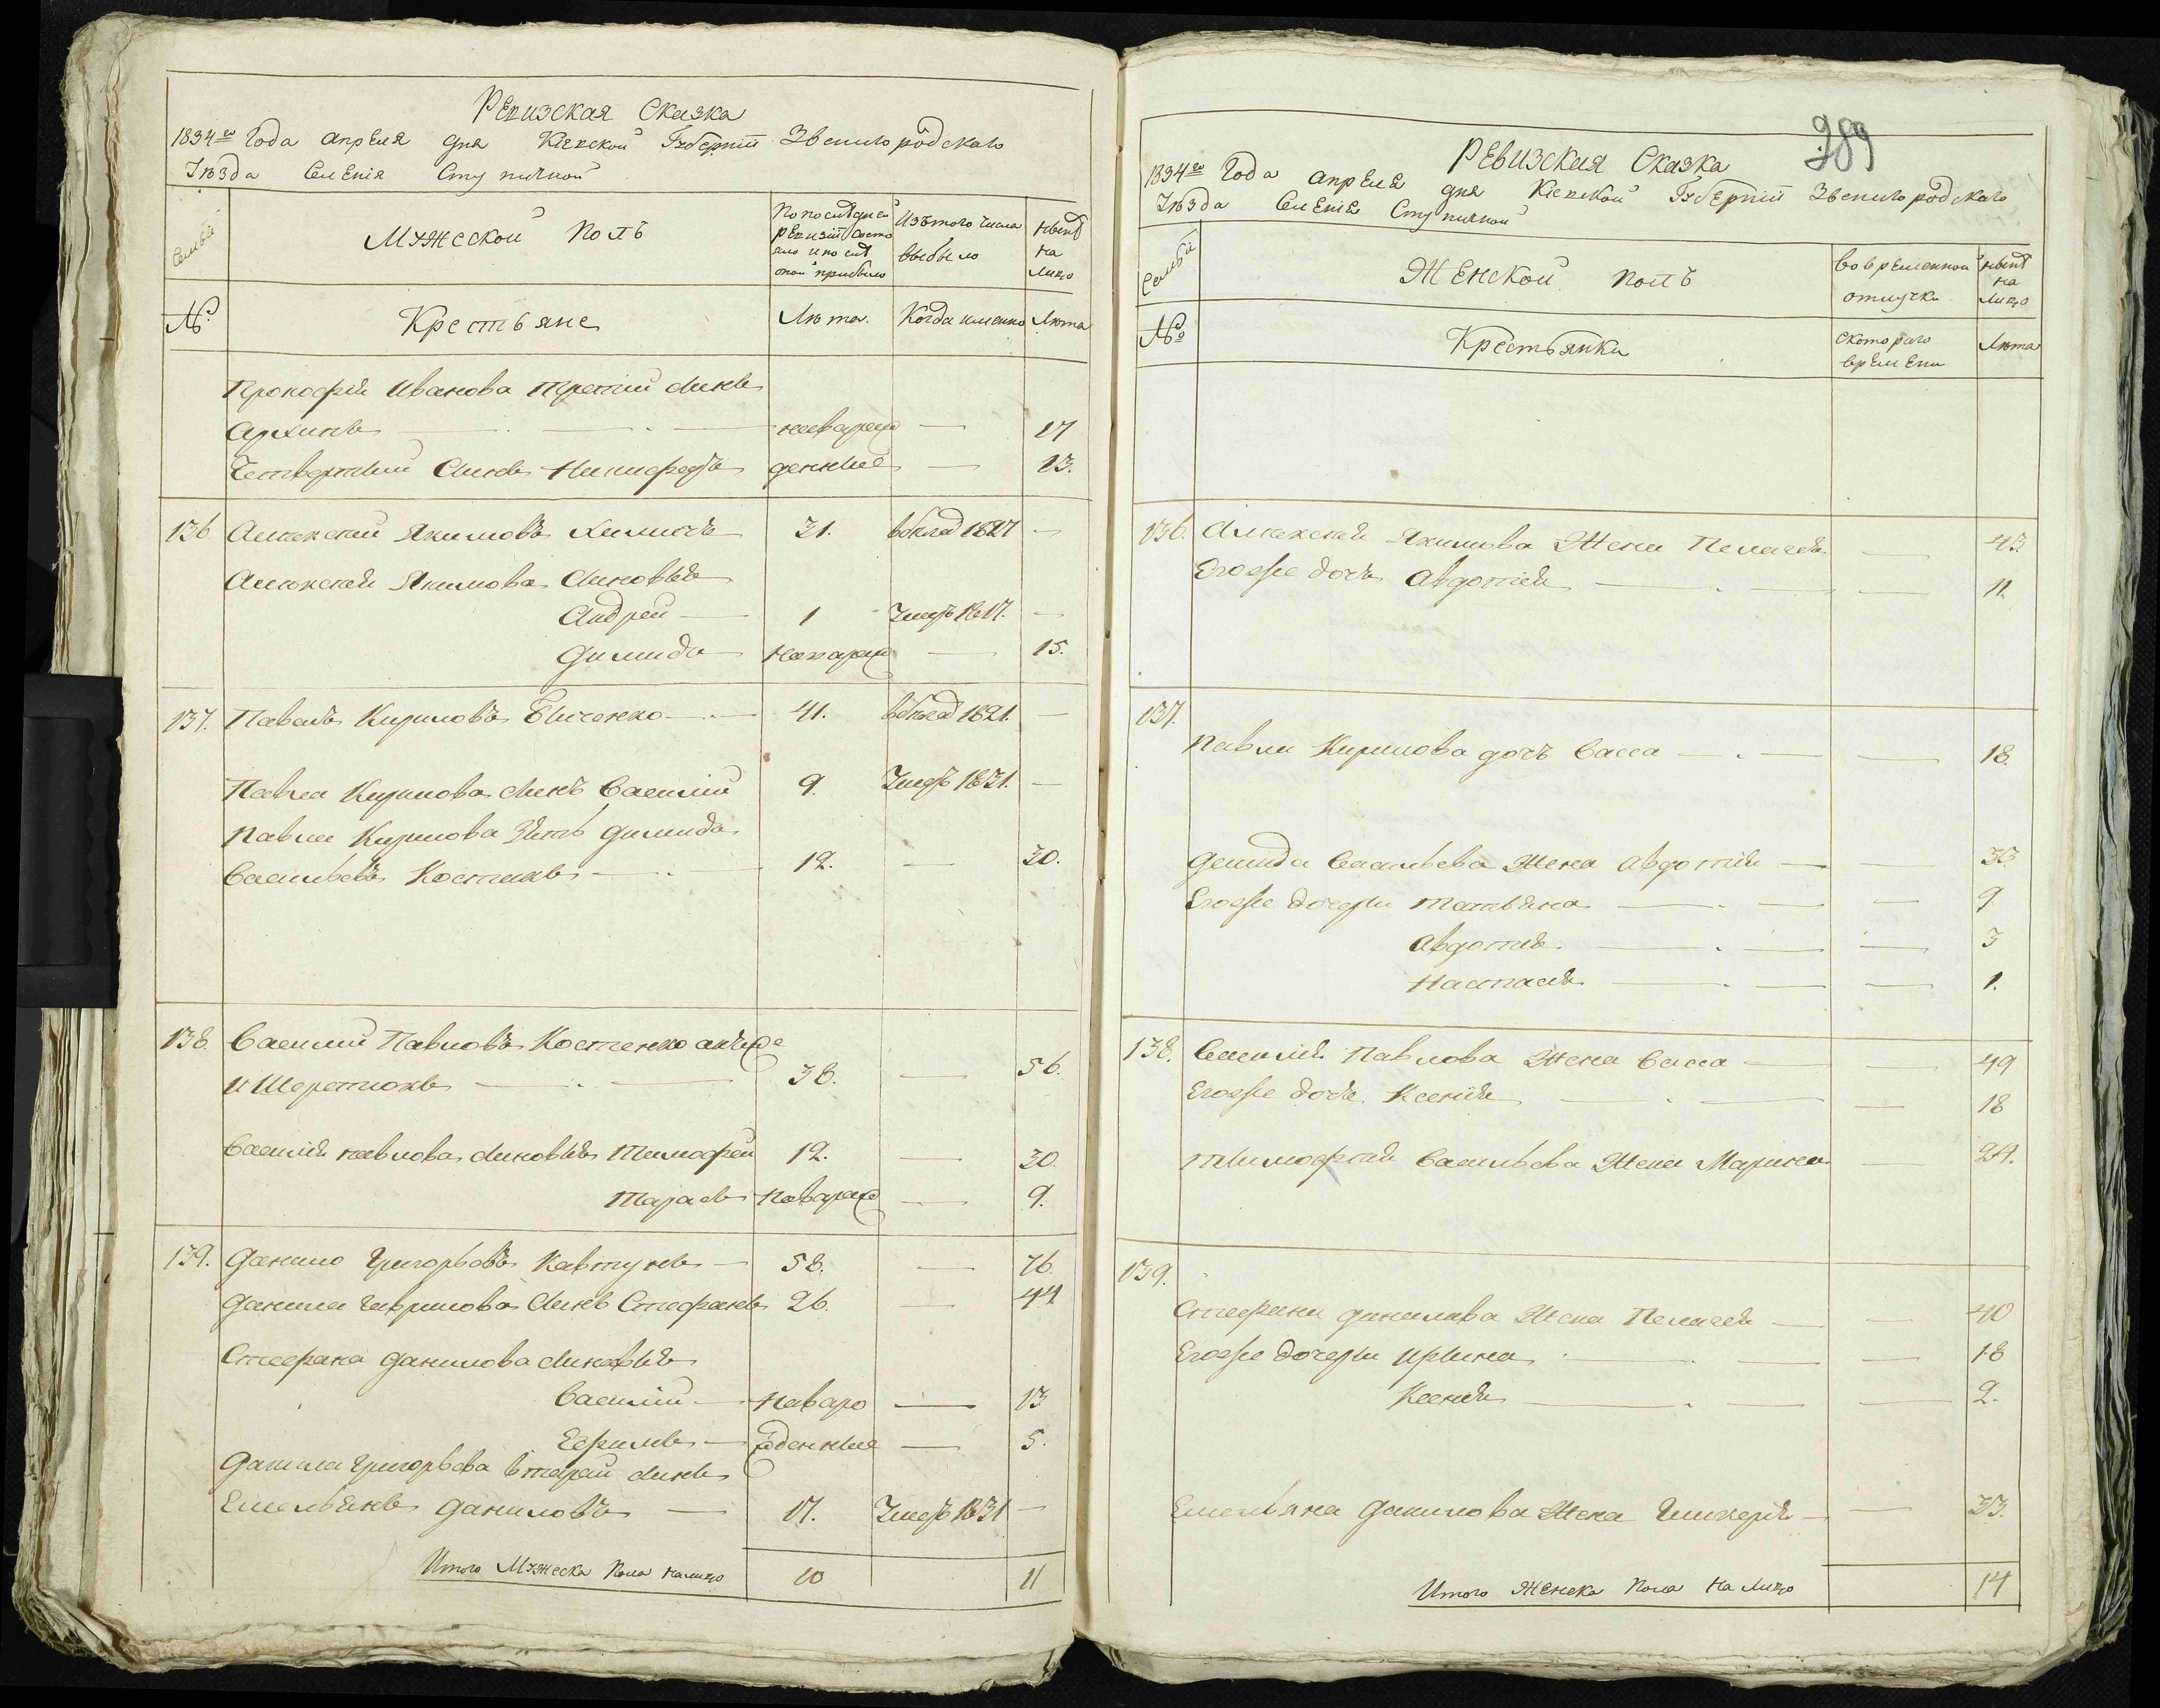 Ревизская Сказка
1834го Года апреля дня Кіевской Губерніи Звенигородскаго
Уѣзда Селенія Ступичной
Семьи
Мужеской Полъ
По последней ревизіи состояло и послѣ оной прибыло
Изъ того числа выбыло
Нынѣ на лицо
№
Крестьяне
Лѣта.
Когда именно
Лѣта
Прокофія Иванова третій синъ
Архипъ новорож — 17
Четвертый Синъ Никифоръ денные — 13.
136 Алексей Якимовъ 31. 1827 —
Алексея Якимова синовья
Андрей — 1 Умеръ 1817. —
Димидъ Новорож — 15.
137. Павелъ Кириловъ 41. 1821. —
Павла Кирилова синъ Василій 9. Умеръ 1831. —
Павла Кирилова Зять Димидъ
Васильевъ Костюкъ 12. — 30.
138. Василий Павловъ Костенко онже
и Шереметюкъ 38. — 56.
Василія павлова синовья Тимофей 12. — 30.
Тарасъ Новорож — 9.
139. Данило Григорьевъ Кавтунъ — 58. — 76.
Данила Гаврилова Синъ Стефанъ 26. — 44
Стефана Данилова синовья
Василій — Новоро — 13
Ефимъ — жденные — 5.
Данила Григорьева вторай синъ
Емельянъ Даниловъ — 17. Умеръ 1831 —
Итого Мужеска Пола налицо 10 11
289
Ревизская Сказка
1834го Года апреля дня Кіевской Губерніи Звенигородскаго
Уѣзда Селенія Ступичной
Семьи
Женской полъ
Во временной отлучке
Нынѣ на лицо
№
Крестьянки
с котораго времени
Лѣта
136. Алексея Якимова Жена Пелагея — 43
Егоже дочь Авдотія — 11.
137.
Павла Кирилова дочъ Васса — 18.
Демида Васильева Жена Авдотія — 33
Егоже дочери Татьяна — 9
Авдотия — 3
Настасія — 1.
138. Василія Павлова Жена Васса — 49
Егоже дочь Ксенія — 18
Тимофея Васильева Жена Марина — 24.
139.
Стефана Данилова Жена Пелагея — 40
Егоже дочери Ирина — 18
Ксенія — 2.
Емельяна Данилова Жена Гликерія — 33.
Итого Женска Пола на Лицо 14